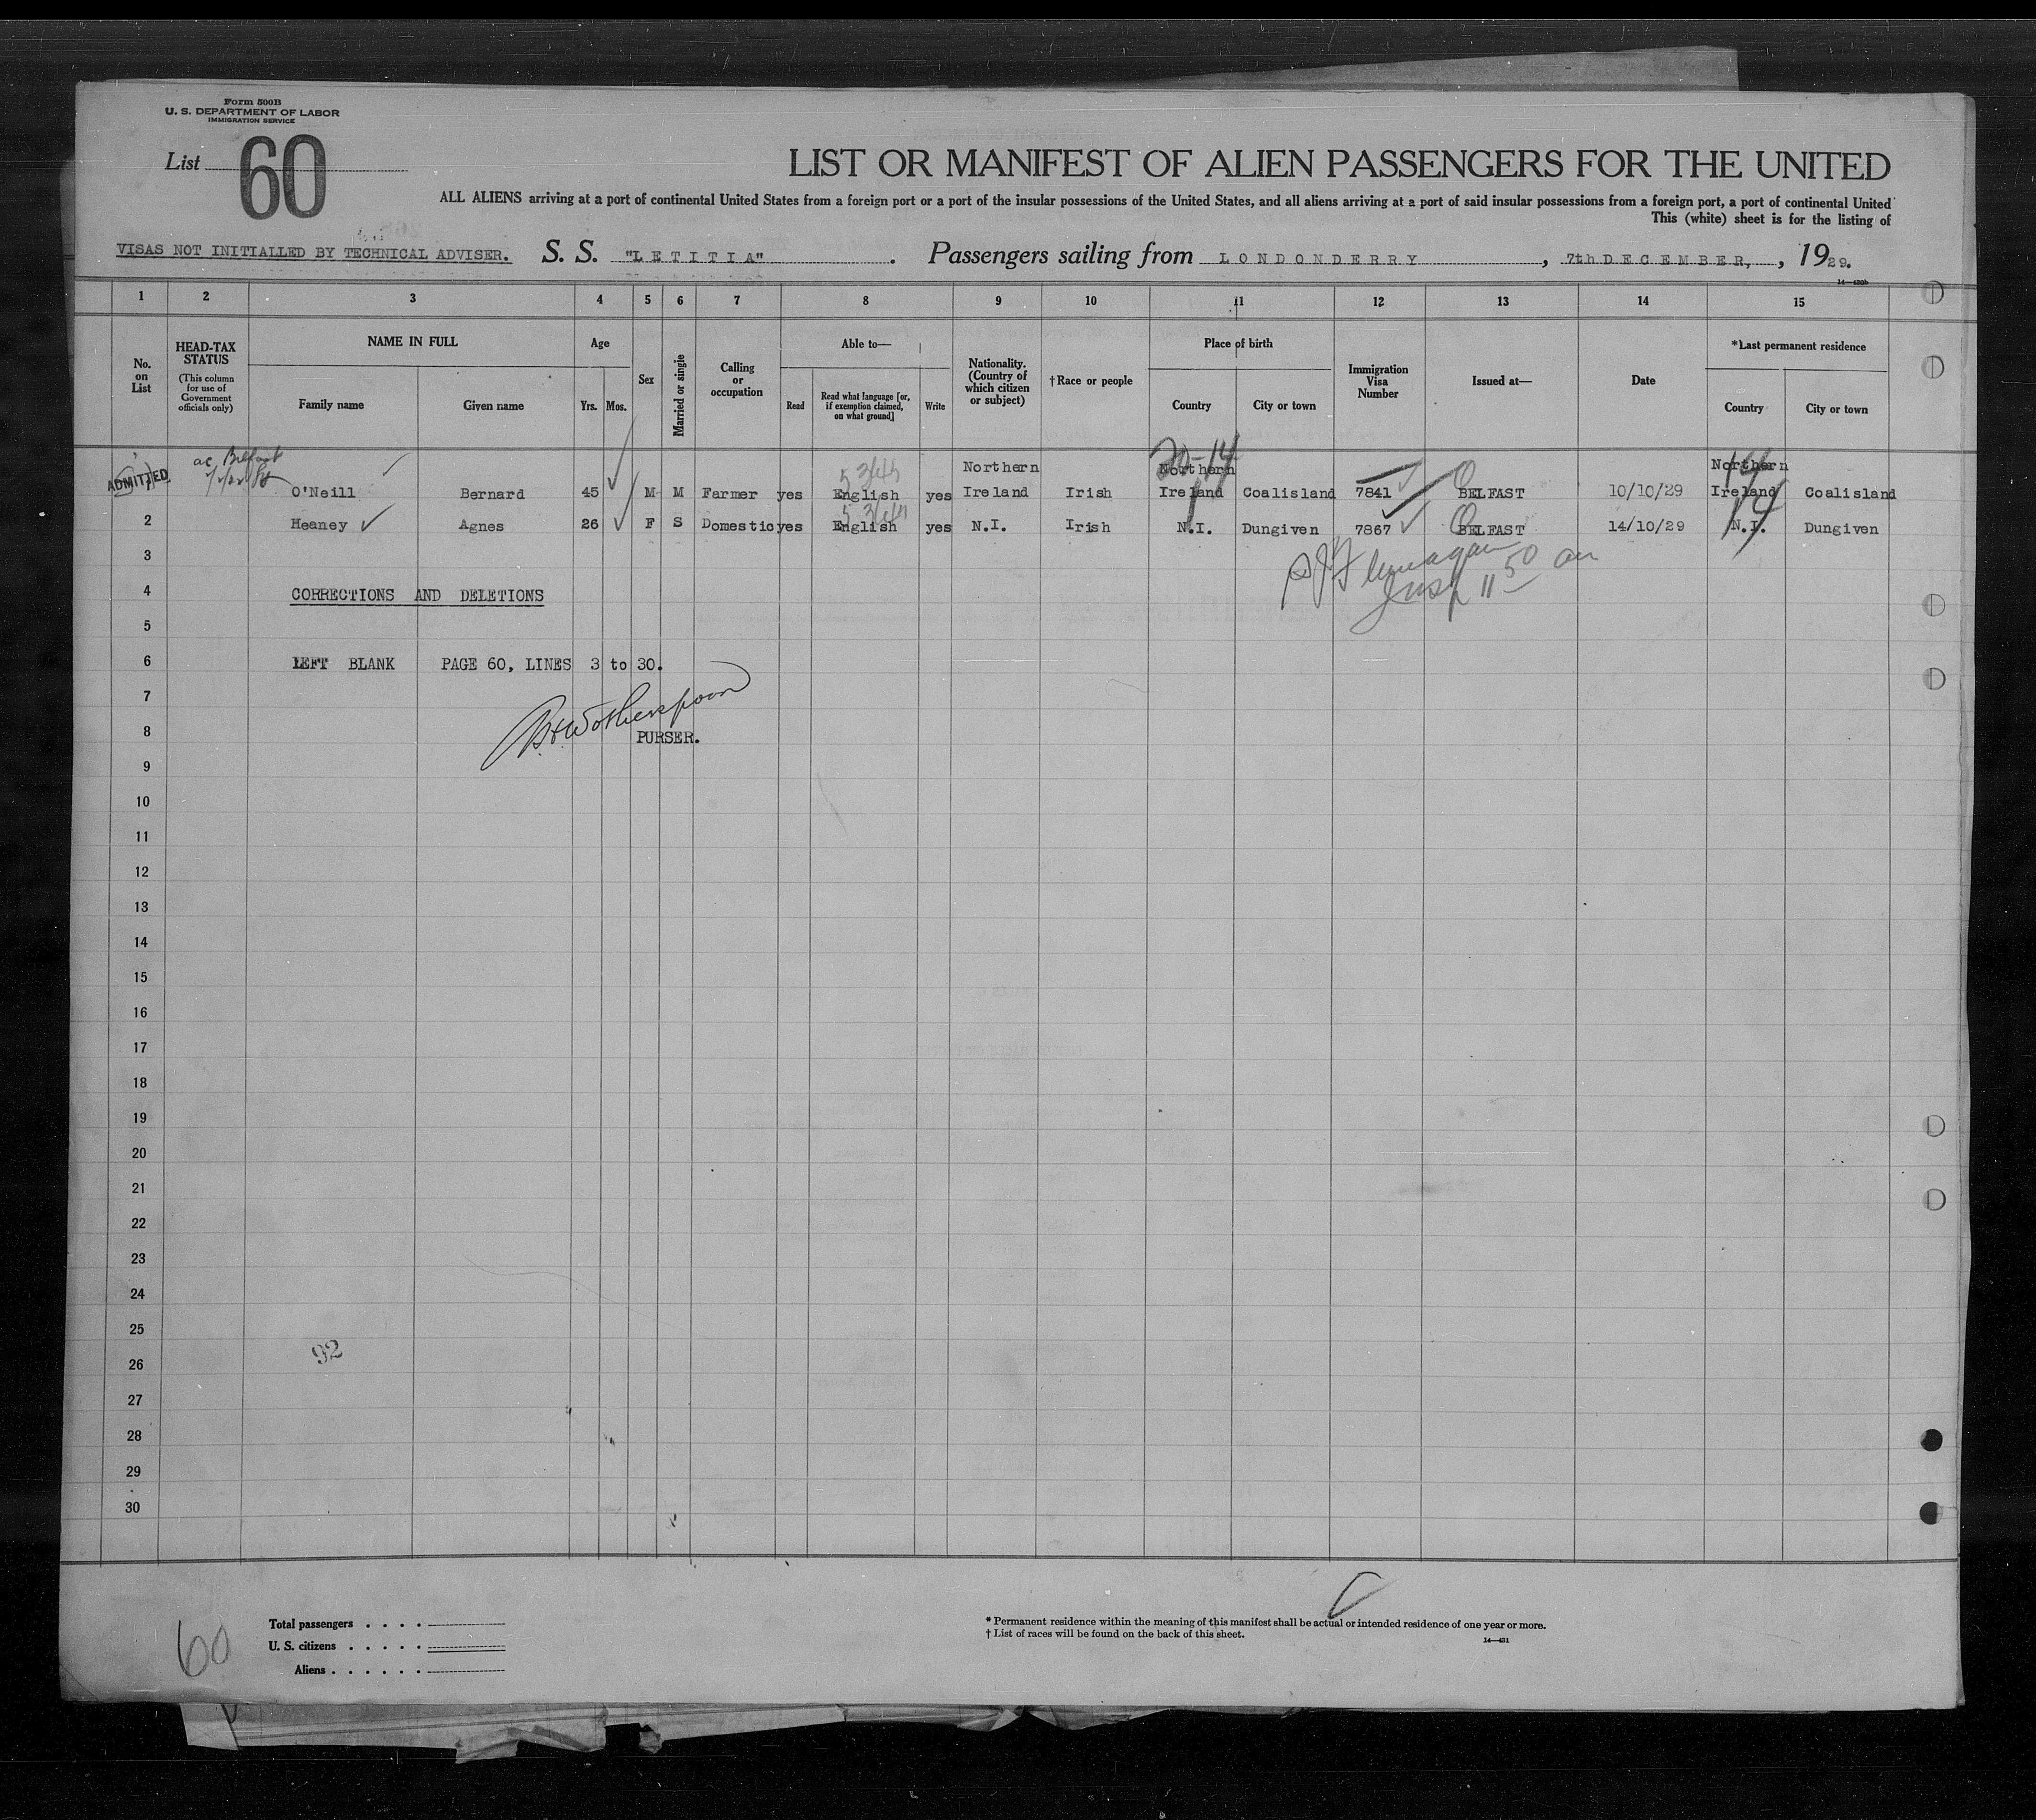 Form 500B
U. S. DEPARTMENT OF LABOR
IMMIGRATION SERVICE
List 60
LIST OR MANIFEST OF ALIEN PASSENGERS FOR THE UNITED
ALL ALIENS arriving at a port of continental United States from a foreign port or a port of the insular possessions of the United States, and all aliens arriving at a port of said insular possessions from a foreign port, a port of continental United
This (white) sheet is for the listing of
VISAS NOT INITIALLED BY TECHNICAL ADVISER. S. S. "LETITIA" . Passengers sailing from LONDONDERRY , 7th DECEMBER, , 1929.
14—430b
1 2 3 4 5 6 7 8 9 10 11 12 13 14 15
No. on List
HEAD-TAX STATUS (This column for use of Government officials only)
NAME IN FULL
Family name Given name
Age
Yrs. Mos.
Sex
Married or single
Calling or occupation
Able to—
Read
Read what language [or, if exemption claimed, on what ground]
Write
Nationality. (Country of which citizen or subject)
†Race or people
Place of birth
Country City or town
Immigration Visa Number
Issued at—
Date
*Last permanent residence
Country City or town
ADMITTED ac Belfast 20-14 14
O'Neill Bernard 45 M M Farmer yes English yes Northern Ireland Irish Northern Ireland Coalisland 7841 BELFAST 10/10/29 Northern Ireland Coalisland
2 Heaney Agnes 26 F S Domestic yes English yes N.I. Irish N.I. Dungiven 7867 BELFAST 14/10/29 N.I. Dungiven
3
Insp 11 50 am
4 CORRECTIONS AND DELETIONS
5
6 LEFT BLANK PAGE 60, LINES 3 to 30.
7
Wotherspoon
8 PURSER.
9
10
11
12
13
14
15
16
17
18
19
20
21
22
23
24
25
92
26
27
28
29
30
60
Total passengers . . . .
U. S. citizens . . . . .
Aliens . . . . . .
* Permanent residence within the meaning of this manifest shall be actual or intended residence of one year or more.
† List of races will be found on the back of this sheet.
14—431